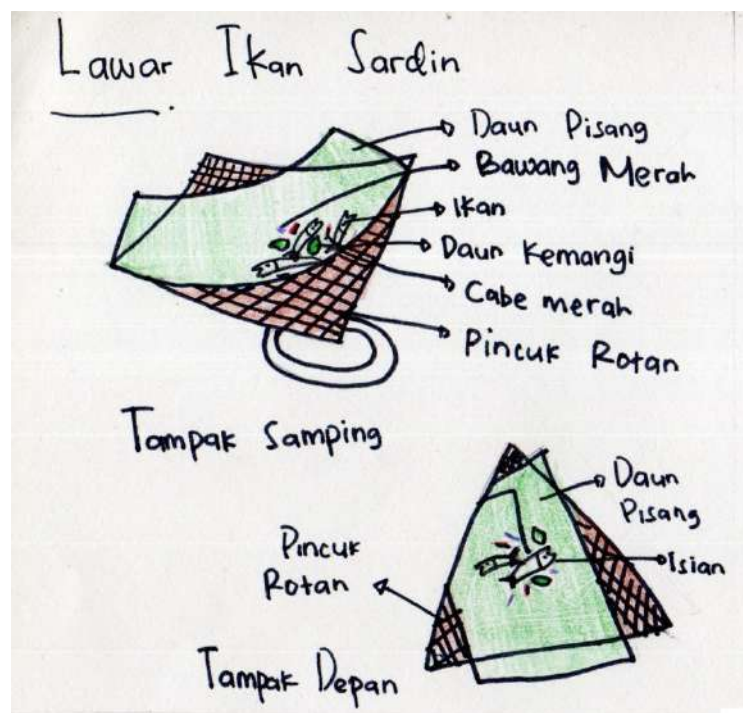 Lawar Ikan Sardin
Daun Pisang
Bawang Merah
Ikan
Daun Kemangi
Cabe merah
Pincuk Rotan
Tampak Samping
Daun
Pisang
Isian
Pincuk
Rotan
Tampak Depan